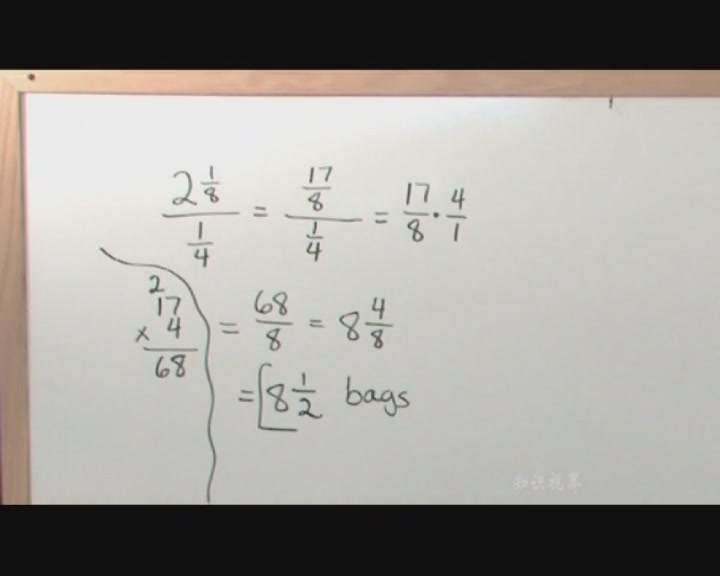 2 1/8 / 1/4 = 17/8 / 1/4 = 17/8 · 4/1
2
17
× 4
68
= 68/8 = 8 4/8
= 8 1/2 bags
知识视界